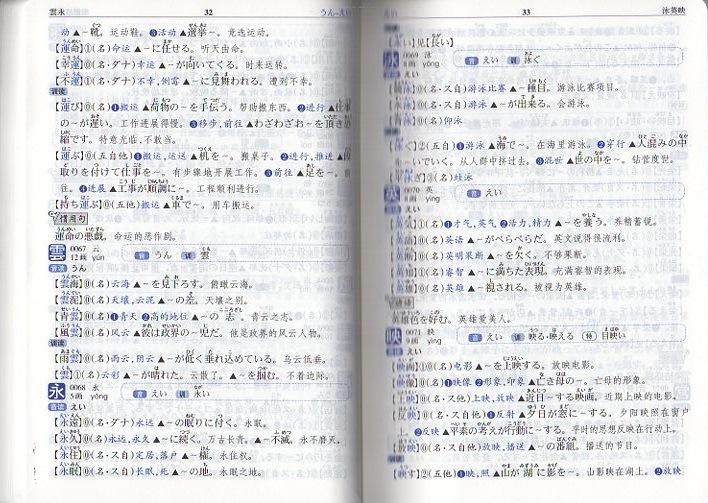 雲永
32
うん-えい
動▲~靴。运动鞋。❸活动▲選挙~。竞选运动。
【運命】①(名)命运▲~に任せる。听天由命。
【幸運】⓪(名・ダナ)幸运▲~が向いてくる。时来运转。
【不運】①(名・ダナ)不幸,倒霉▲~に見舞われる。遭到不幸。
训读
【運び】⓪(名)❶搬运▲荷物の~を手伝う。帮助搬东西。❷进行▲仕事
の~が遅い。工作进展得慢。❸移步,前往▲わざわざお~を頂き
縮です。特意光临,不敢当。
【運ぶ】⓪(五自他)❶搬运,运送▲机を~。搬桌子。❷进行,推进▲
取りを付けて仕事を~。有步骤地开展工作。❸前往▲足を~。前
往。❹进展▲工事が順調に~。工程顺利进行。
【持ち運ぶ】⓪(五他)搬运▲車で~。用车搬运。
惯用句
運命の悪戯。命运的恶作剧。
雲
0067 云
12画 yún
音 うん 训 雲
音读 うん
【雲海】⓪(名)云海▲~を見下ろす。俯瞰云海。
【雲泥】⓪(名)天壤,云泥▲~の差。天壤之别。
【青雲】⓪(名)❶青天❷高的地位▲~の志。青云之志。
【風雲】⓪(名)风云▲彼は政界の~児だ。他是政界的风云人物。
训读
【雨雲】⓪(名)雨云,阴云▲~が低く垂れ込めている。乌云低垂。
【雲】①(名)云彩▲~が晴れた。云散了。▲~を掴む。不着边际。
永
0068 永
5画 yǒng
音 えい 训 永い
音读 えい
【永遠】⓪(名・ダナ)永远▲~の眠りに付く。永眠。
【永久】⓪(名)永远,永久▲~に続く。万古长青。▲~不滅。永不磨灭。
【永住】⓪(名・ス自)定居,落户▲~権。永住权。
【永眠】⓪(名・ス自)长眠,死▲~の地。永眠之地。
33
泳英映
【永い】见【長い】
泳
0069 泳
8画 yǒng
音 えい 训 泳ぐ
音读 えい
【競泳】⓪(名・ス自)游泳比赛▲~種目。游泳比赛项目。
【水泳】⓪(名・ス自)游泳▲~が出来る。会游泳。
【背泳】⓪(名)仰泳
【泳ぐ】②(五自)❶游泳▲海で~。在海里游泳。❷穿行▲人混みの中
を~いでいく。从人群中挤过去。❸混世▲世の中を~。钻营度世。
⓪(名)蛙泳
英
0070 英
8画 yīng
音 えい
音读 えい
【英気】①(名)❶才气,英气❷活力,精力▲~を養う。养精蓄锐。
【英語】⓪(名)英语▲~がぺらぺらだ。英文说得很流利。
(名)英明果断▲~を欠く。不够果断。
(名)睿智▲~に満ちた表現。充满睿智的表现。
【英雄】⓪(名)英雄▲~視される。被视为英雄。
英雄色を好む。英雄爱美人。
映
0071 映
9画 yìng
音 えい 训 映る・映える 特 目映い
音读 えい
【映画】(名)电影▲~を上映する。放映电影。
【映像】⓪(名)❶映像❷形象,印象▲亡き母の~。亡母的形象。
【上映】⓪(名・ス他)上映,放映▲近日~する映画。近期上映的电影。
【反映】⓪(名・ス自他)❶反射▲夕日が窓に~する。夕阳映照在窗户
上。❷反映▲平素の考えが行動に~する。平时的思想反映在行动上。
【放映】⓪(名・ス他)放映,播送▲~の番組。播送的节目。
【映す】②(五他)❶映,照▲山が湖に影を~。山影映在湖上。❷放映